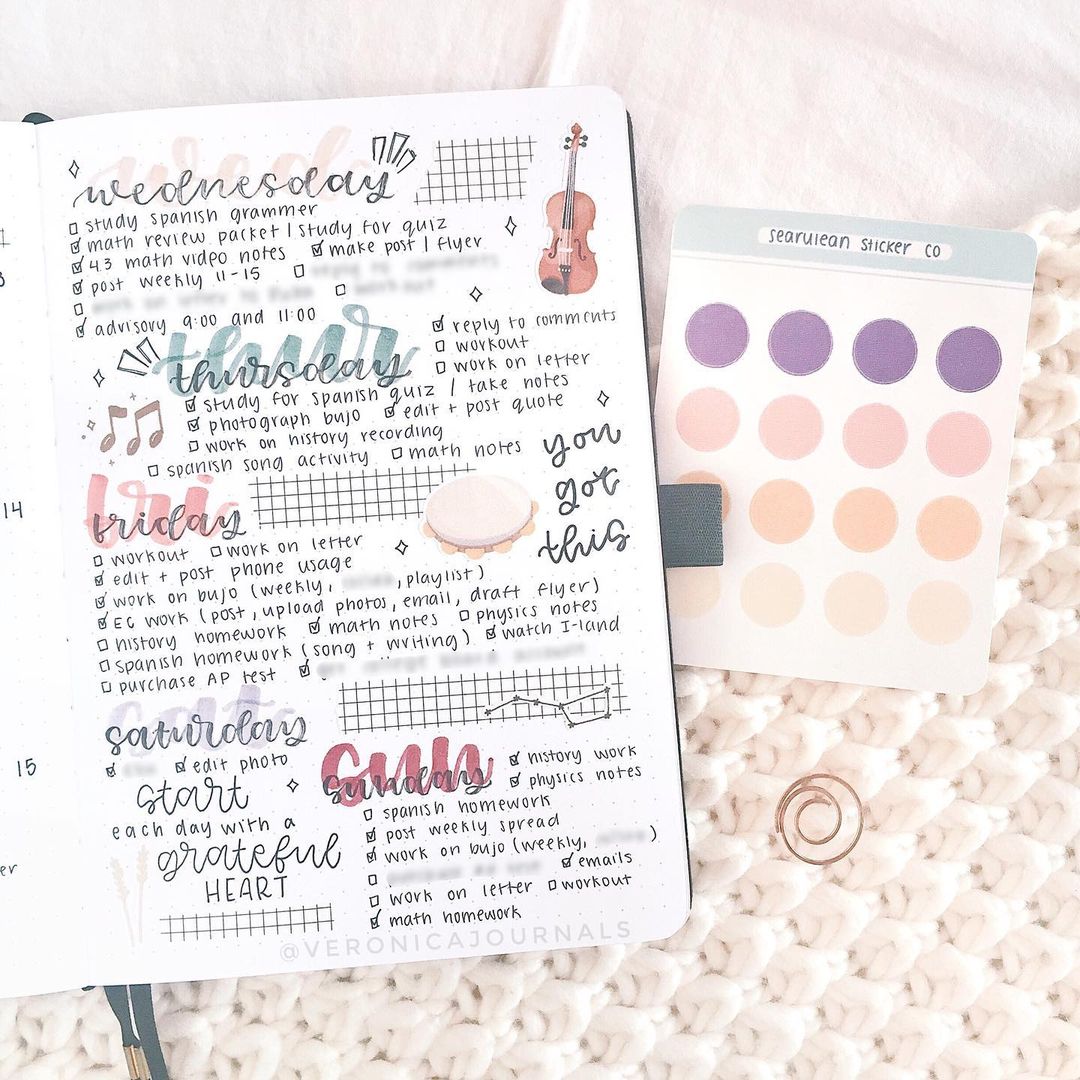 wednesday
study spanish grammer
math review packet | study for quiz
4.3 math video notes make post | flyer
post weekly 11-15
advisory 9:00 and 11:00
thur
thursday
reply to comments
workout
work on letter
study for spanish quiz / take notes
photograph bujo edit + post quote
work on history recording
spanish song activity math notes
you
got
this
fri
friday
workout work on letter
edit + post phone usage
work on bujo (weekly, , playlist)
EC work (post, upload photos, email, draft flyer)
history homework math notes physics notes
spanish homework (song + writing) watch I-land
purchase AP test
saturday
edit photo
start
each day with a
grateful
HEART
sun
sunday
history work
physics notes
spanish homework
post weekly spread
work on bujo (weekly, )
emails
work on letter workout
math homework
@VERONICAJOURNALS
14
15
er
searulean sticker co